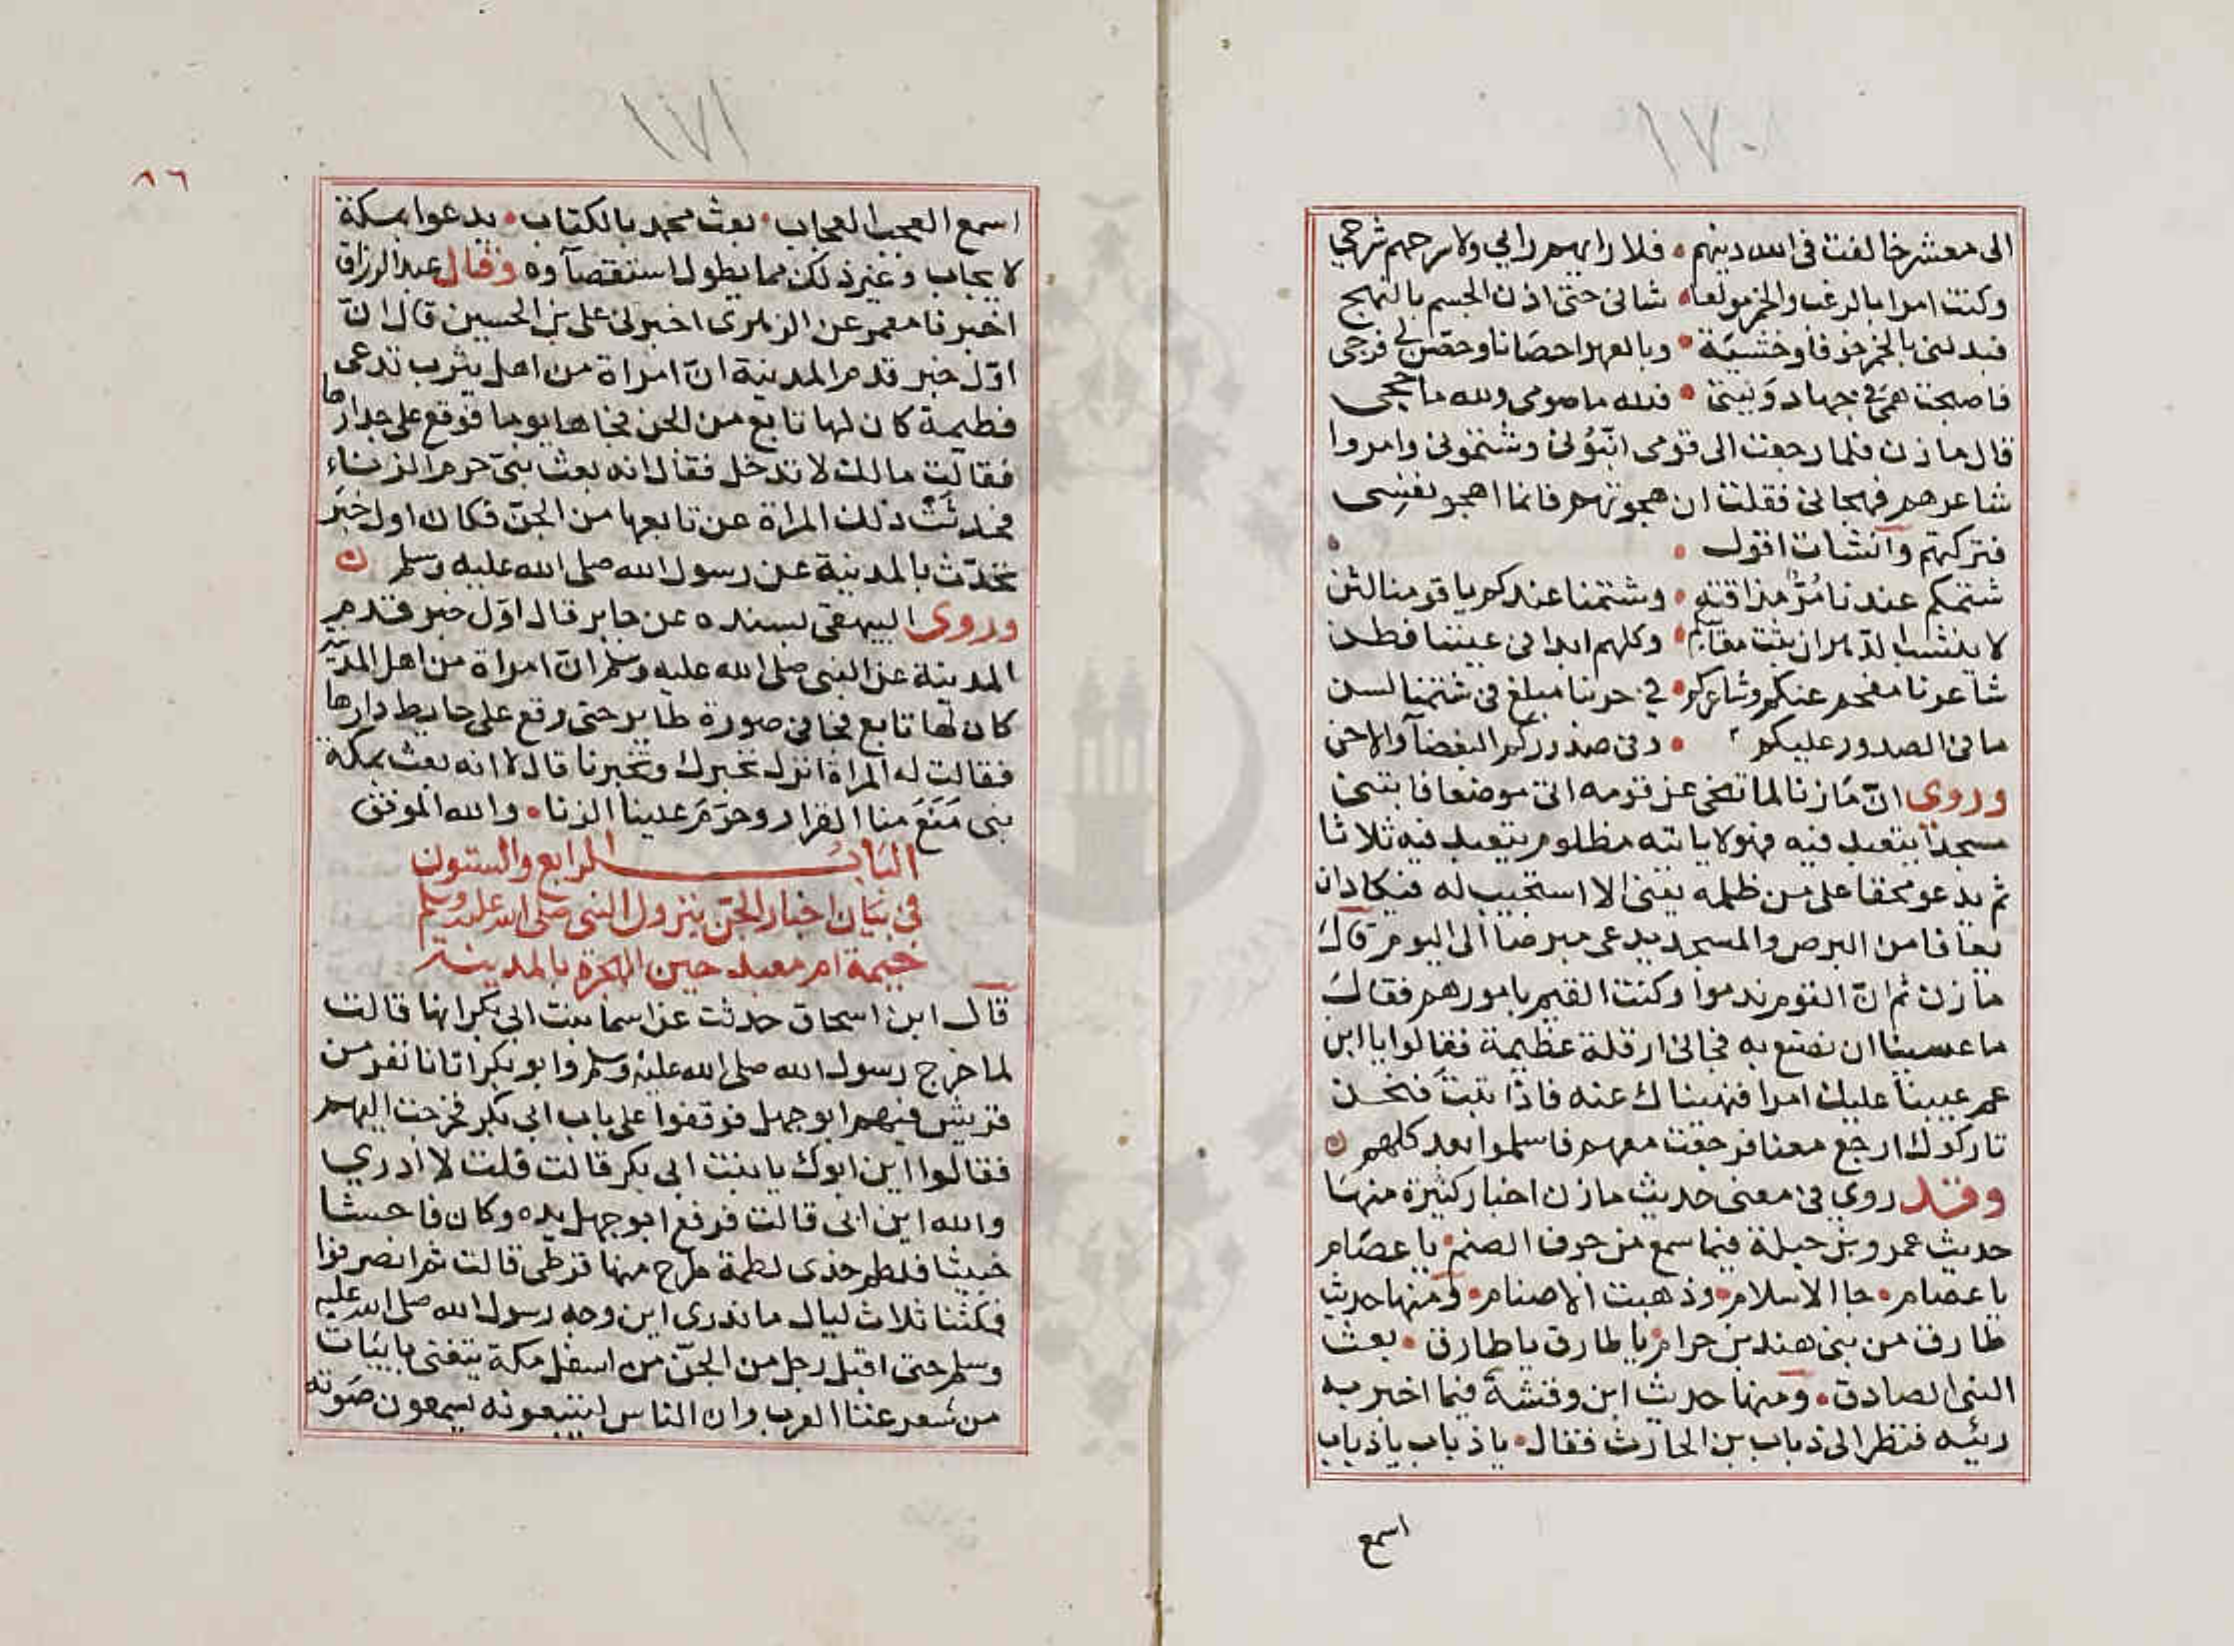 ١٧٠
الى معشر خالفت فى الله دينهم • فلا رايهم رايي ولا شرجهم شرجي
وكنت امرا بالرغب والخمر مولعا • شبابى حتى اذن الجسم بالنهج
فبدلنى بالخمر خوفا وخشية • وبالعهر احصانا وحصن لي فرجى
فاصبحت همى في جهاد ونيتى • فلله ما صومى ولله ما حجى
قال مازن فلما رجعت الى قومى انبونى وشتمونى وامروا
شاعرهم فهجانى فقلت ان هجوتهم فانما اهجو نفسى
فتركتهم وانشات اقول •
شتمكم عندنا مر مذاقته • وشتمنا عندكم يا قومنا لثن
لا ينشب الدهر ان بثت معايبكم • وكلهم ابدا فى عيبنا فطن
شاعرنا مفحم عنكم وشاعركم • في حربنا مبلغ فى شتمنا لسن
ما فى الصدور عليكم • وفى صدوركم البغضآ والاحن
وروى ان مازنا لما تنحى عن قومه اتى موضعا فابتنى
مسجدا يتعبد فيه فهو لا ياتيه مظلوم يتعبد فيه ثلاثا
ثم يدعو محقا على من ظلمه يعنى الا استجيب له فيكاد ان
يعافا من البرص والمسجد يدعى مبرصا الى اليوم قال
مازن ثم ان القوم ندموا وكنت القيم بامورهم فقال
ما عسينا ان نصنع به فجانى ارفلة عظيمة فقالوا يا ابن
عم عيبنا عليك امرا فنهيناك عنه فاذا تبت فنحن
تاركوك ارجع معنا فرجعت معهم فاسلموا بعد كلهم ن
وقد روي فى معنى حديث مازن اخبار كثيرة منها
حديث عمرو بن جبلة فيما سمع من جوف الصنم • يا عصام
يا عصام • جا الاسلام • وذهبت الاصنام • ومنها حديث
طارق من بنى هند بن حرام • يا طارق يا طارق • بعث
النبى الصادق • ومنها حديث ابن وقشة فيما اخبر به
رئيه فنظر الى ذباب بن الحارث فقال • يا ذباب يا ذباب
اسمع
١٧١
٨٦
اسمع العجب العجاب • بعث محمد بالكتاب • يدعوا بمكة
لا يجاب وغير ذلك مما يطول استقصآوه وقال عبد الرزاق
اخبرنا معمر عن الزهرى اخبرنى على بن الحسين قال ان
اول خبر قدم المدينة ان امراة من اهل يثرب تدعى
فطيمة كان لها تابع من الجن فجاها يوما فوقع على جدارها
فقالت مالك لا تدخل فقال انه بعث نبى حرم الزناء
فحدثت ذلك المراة عن تابعها من الجن فكان اول خبر
تحدث بالمدينة عن رسول الله صلى الله عليه وسلم ن
وروى البيهقى بسنده عن جابر قال اول خبر قدم
المدينة عن النبى صلى الله عليه وسلم ان امراة من اهل المدينة
كان لها تابع فجا فى صورة طاير حتى وقع على حايط دارها
فقالت له المراة انزل نخبرك وتخبرنا قال لا انه بعث بمكة
نبى مَنَعَ منا القرار وحرّمَ علينا الزنا • والله الموفق
الباب الرابع والستون
فى بيان اخبار الجن بنزول النبى صلى الله عليه وسلم
خيمة ام معبد حين الهجرة بالمدينة
قال ابن اسحاق حدثت عن اسما بنت ابى بكر انها قالت
لما خرج رسول الله صلى الله عليه وسلم وابو بكر اتانا نفر من
قريش فيهم ابو جهل فوقفوا على باب ابى بكر فخرجت اليهم
فقالوا اين ابوك يا بنت ابى بكر قالت قلت لا ادري
والله اين ابى قالت فرفع ابو جهل يده وكان فاحشا
خبيثا فلطم خدى لطمة طرح منها قرطى قالت ثم انصرفوا
فمكثنا ثلاث ليال ما ندرى اين وجه رسول الله صلى الله عليه
وسلم حتى اقبل رجل من الجن من اسفل مكة يتغنى بابيات
من شعر غنا العرب وان الناس ليتبعونه يسمعون صوته